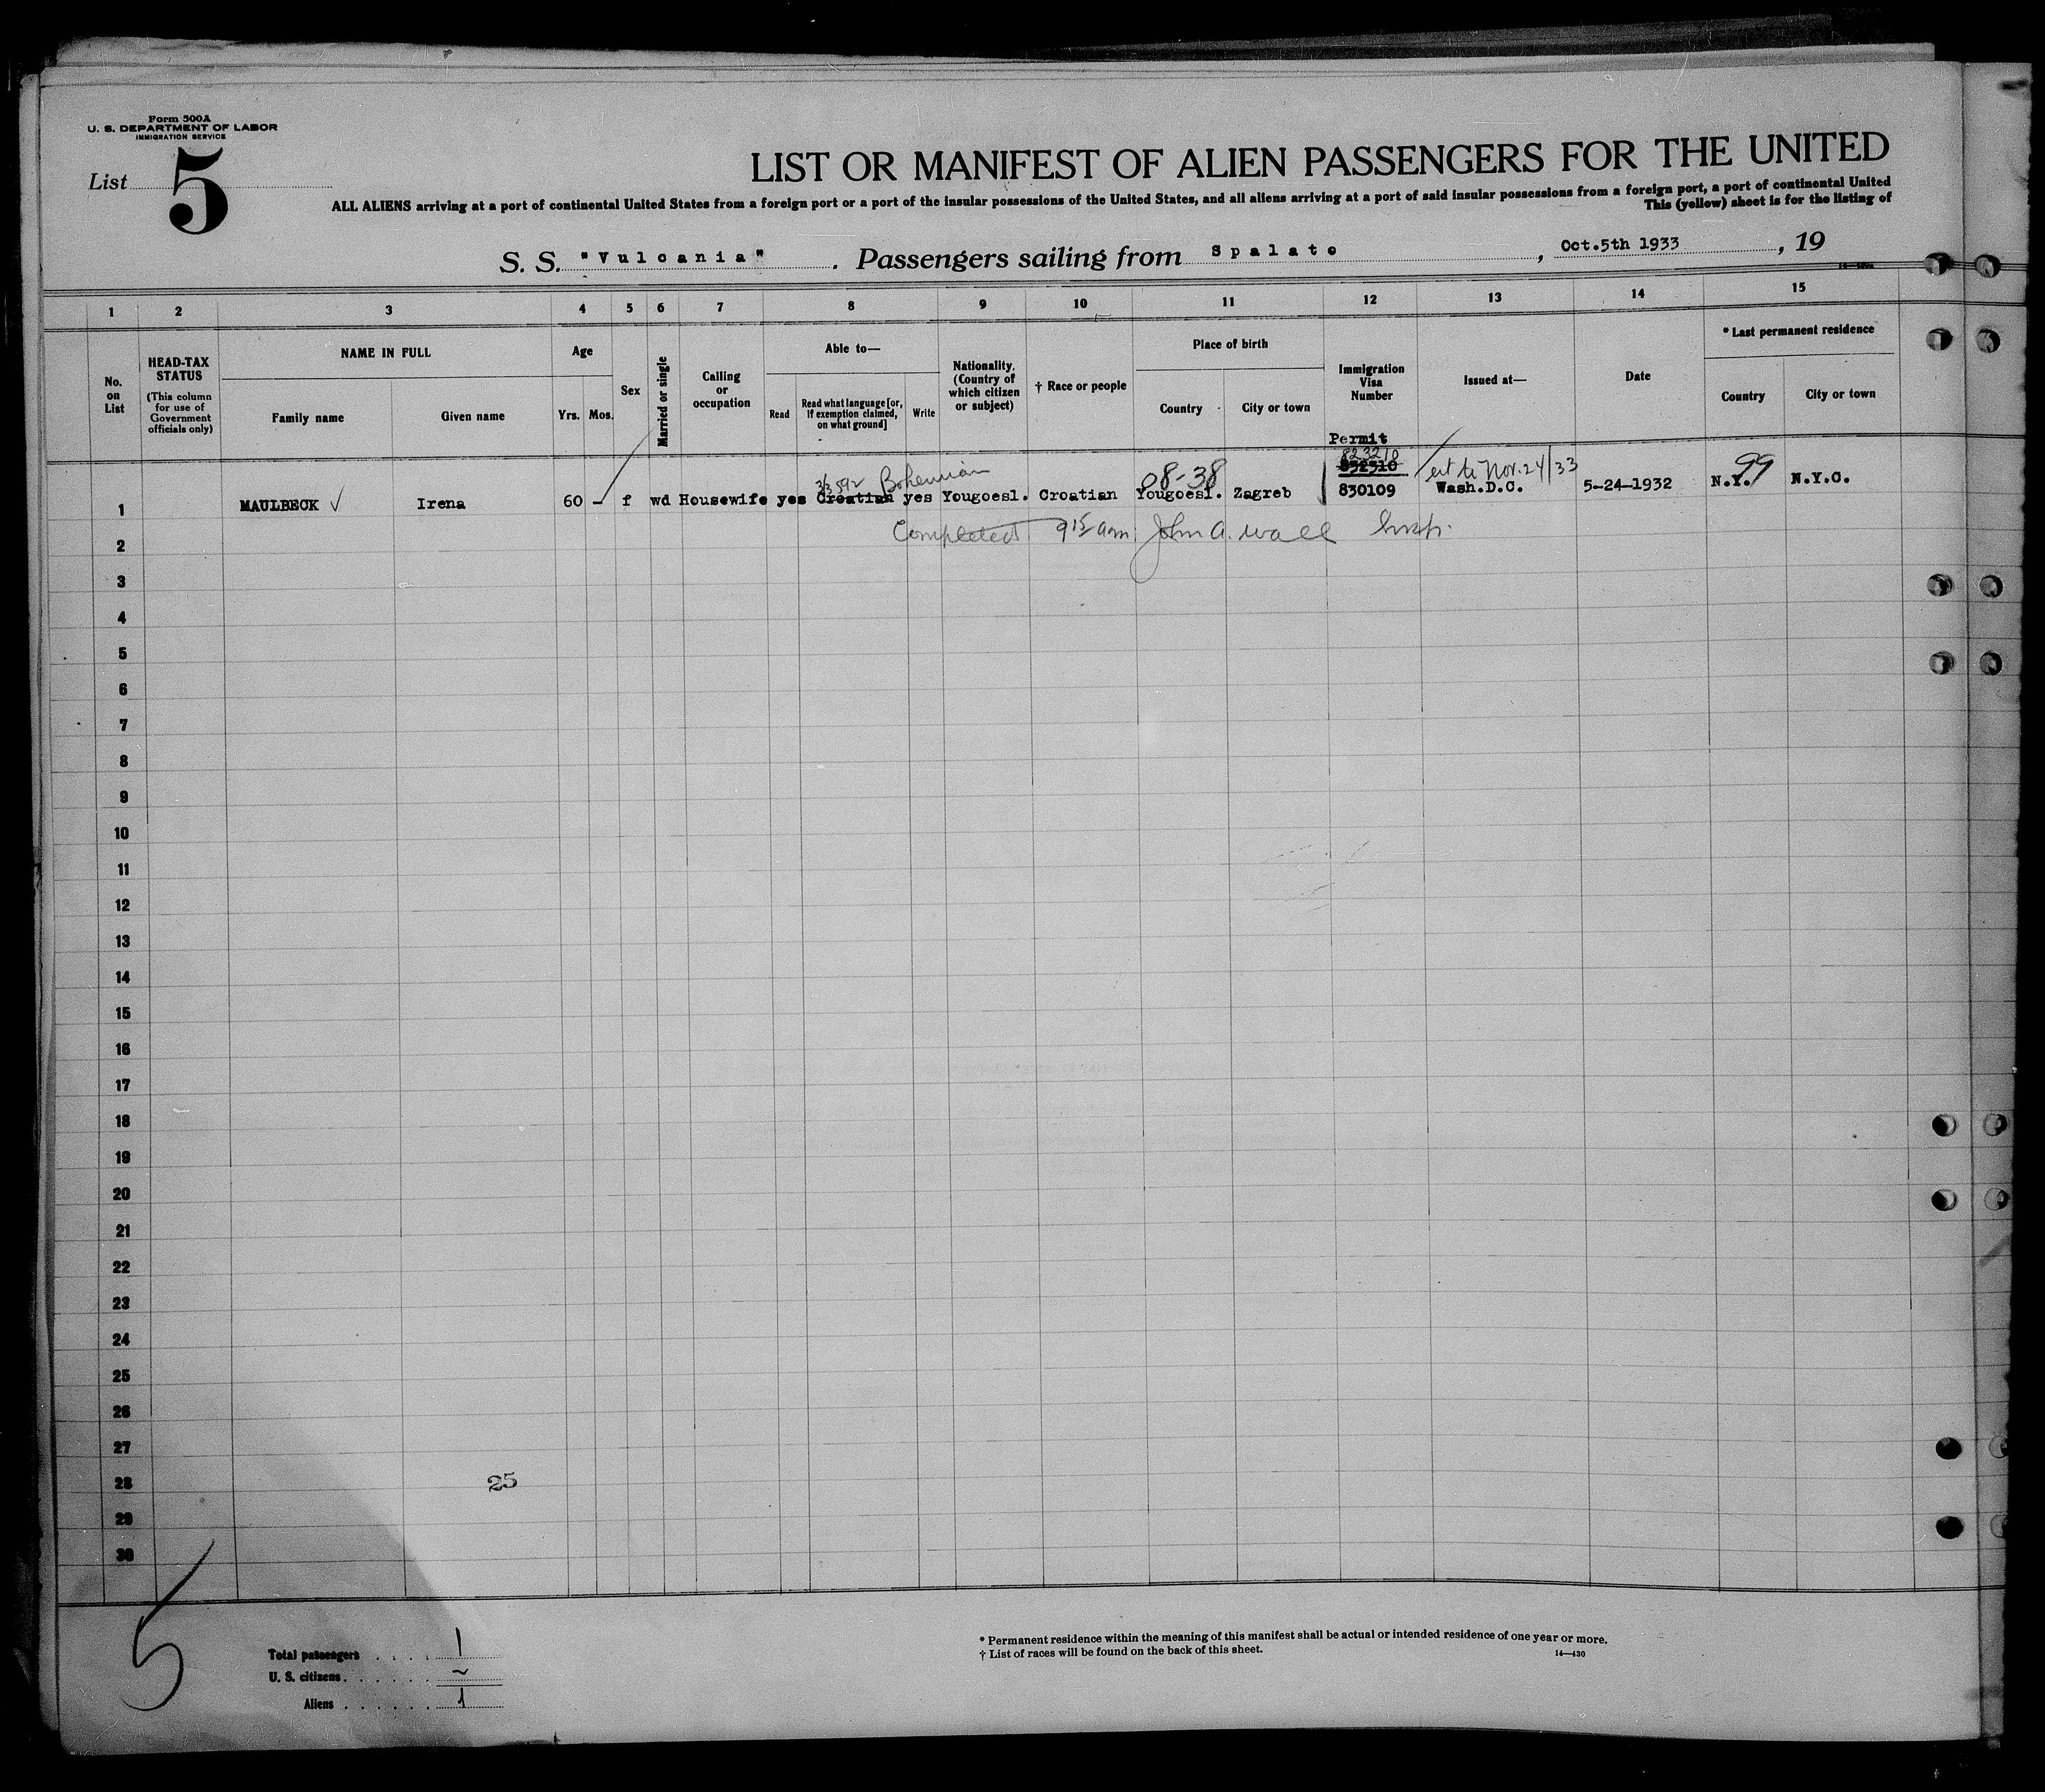 Form 500A
U. S. DEPARTMENT OF LABOR
IMMIGRATION SERVICE
List 5
LIST OR MANIFEST OF ALIEN PASSENGERS FOR THE UNITED
ALL ALIENS arriving at a port of continental United States from a foreign port or a port of the insular possessions of the United States, and all aliens arriving at a port of said insular possessions from a foreign port, a port of continental United
This (yellow) sheet is for the listing of
S. S. "Vulcania". Passengers sailing from Spalato, Oct.5th 1933, 19
1 2 3 4 5 6 7 8 9 10 11 12 13 14 15
No. on List
HEAD-TAX STATUS
(This column for use of Government officials only)
NAME IN FULL
Family name Given name
Age
Yrs. Mos.
Sex
Married or single
Calling or occupation
Able to—
Read
Read what language [or, if exemption claimed, on what ground]
Write
Nationality. (Country of which citizen or subject)
† Race or people
Place of birth
Country City or town
Immigration Visa Number
Issued at—
Date
* Last permanent residence
Country City or town
Permit
823210
832310
ext to Nov. 24/33
33592 Bohemian
08-38
99
1 MAULBECK ✓ Irena 60 – f wd Housewife yes Croatian yes Yougoesl. Croatian Yougoesl. Zagreb 830109 Wash.D.C. 5-24-1932 N.Y. N.Y.C.
Completed 9 15 am John A. Wall Insp.
2
3
4
5
6
7
8
9
10
11
12
13
14
15
16
17
18
19
20
21
22
23
24
25
26
27
28 25
29
30
5
Total passengers . . . . 1
U. S. citizens . . . . . . ~
Aliens . . . . . . 1
* Permanent residence within the meaning of this manifest shall be actual or intended residence of one year or more.
† List of races will be found on the back of this sheet.
14—430